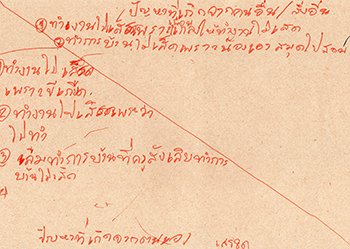 ปัญหาที่เกิดจากคนอื่น/สิ่งอื่น
① ทำงานไม่เสร็จเพราะ ให้ทำงานไม่เสร็จ
② ทำการบ้านไม่เสร็จเพราะน้องเอาสมุดไปซ่อน
ทำงานไม่เสร็จ
เพราะขี้เกียจ
② ทำงานไม่เสร็จเพราะ
ไปทำ
③ ลืมทำการบ้านที่ครูสั่งเลยทำการ
บ้านไม่เสร็จ
ปัญหาที่เกิดจากตนเอง